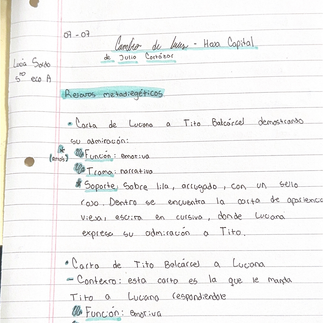 07-07
Cambio de luces - Hoja Capital
de Julio Cortázar
Lucía Soldo
5to eco A
Resavos metadiegéticos
* Carta de Luciana a Tito Balcárcel demostrando
su admiración:
Función: emotiva
Trama: narrativa
Soporte: Sobre lila, arrugado, con un sello
rojo. Dentro se encuentra la carta de apariencia
vieja, escrita en cursiva, donde Luciana
expresa su admiración a Tito.
* Carta de Tito Balcárcel a Luciana
- Contexto: esta carta es la que le manda
Tito a Luciana respondiendole
Función: emotiva